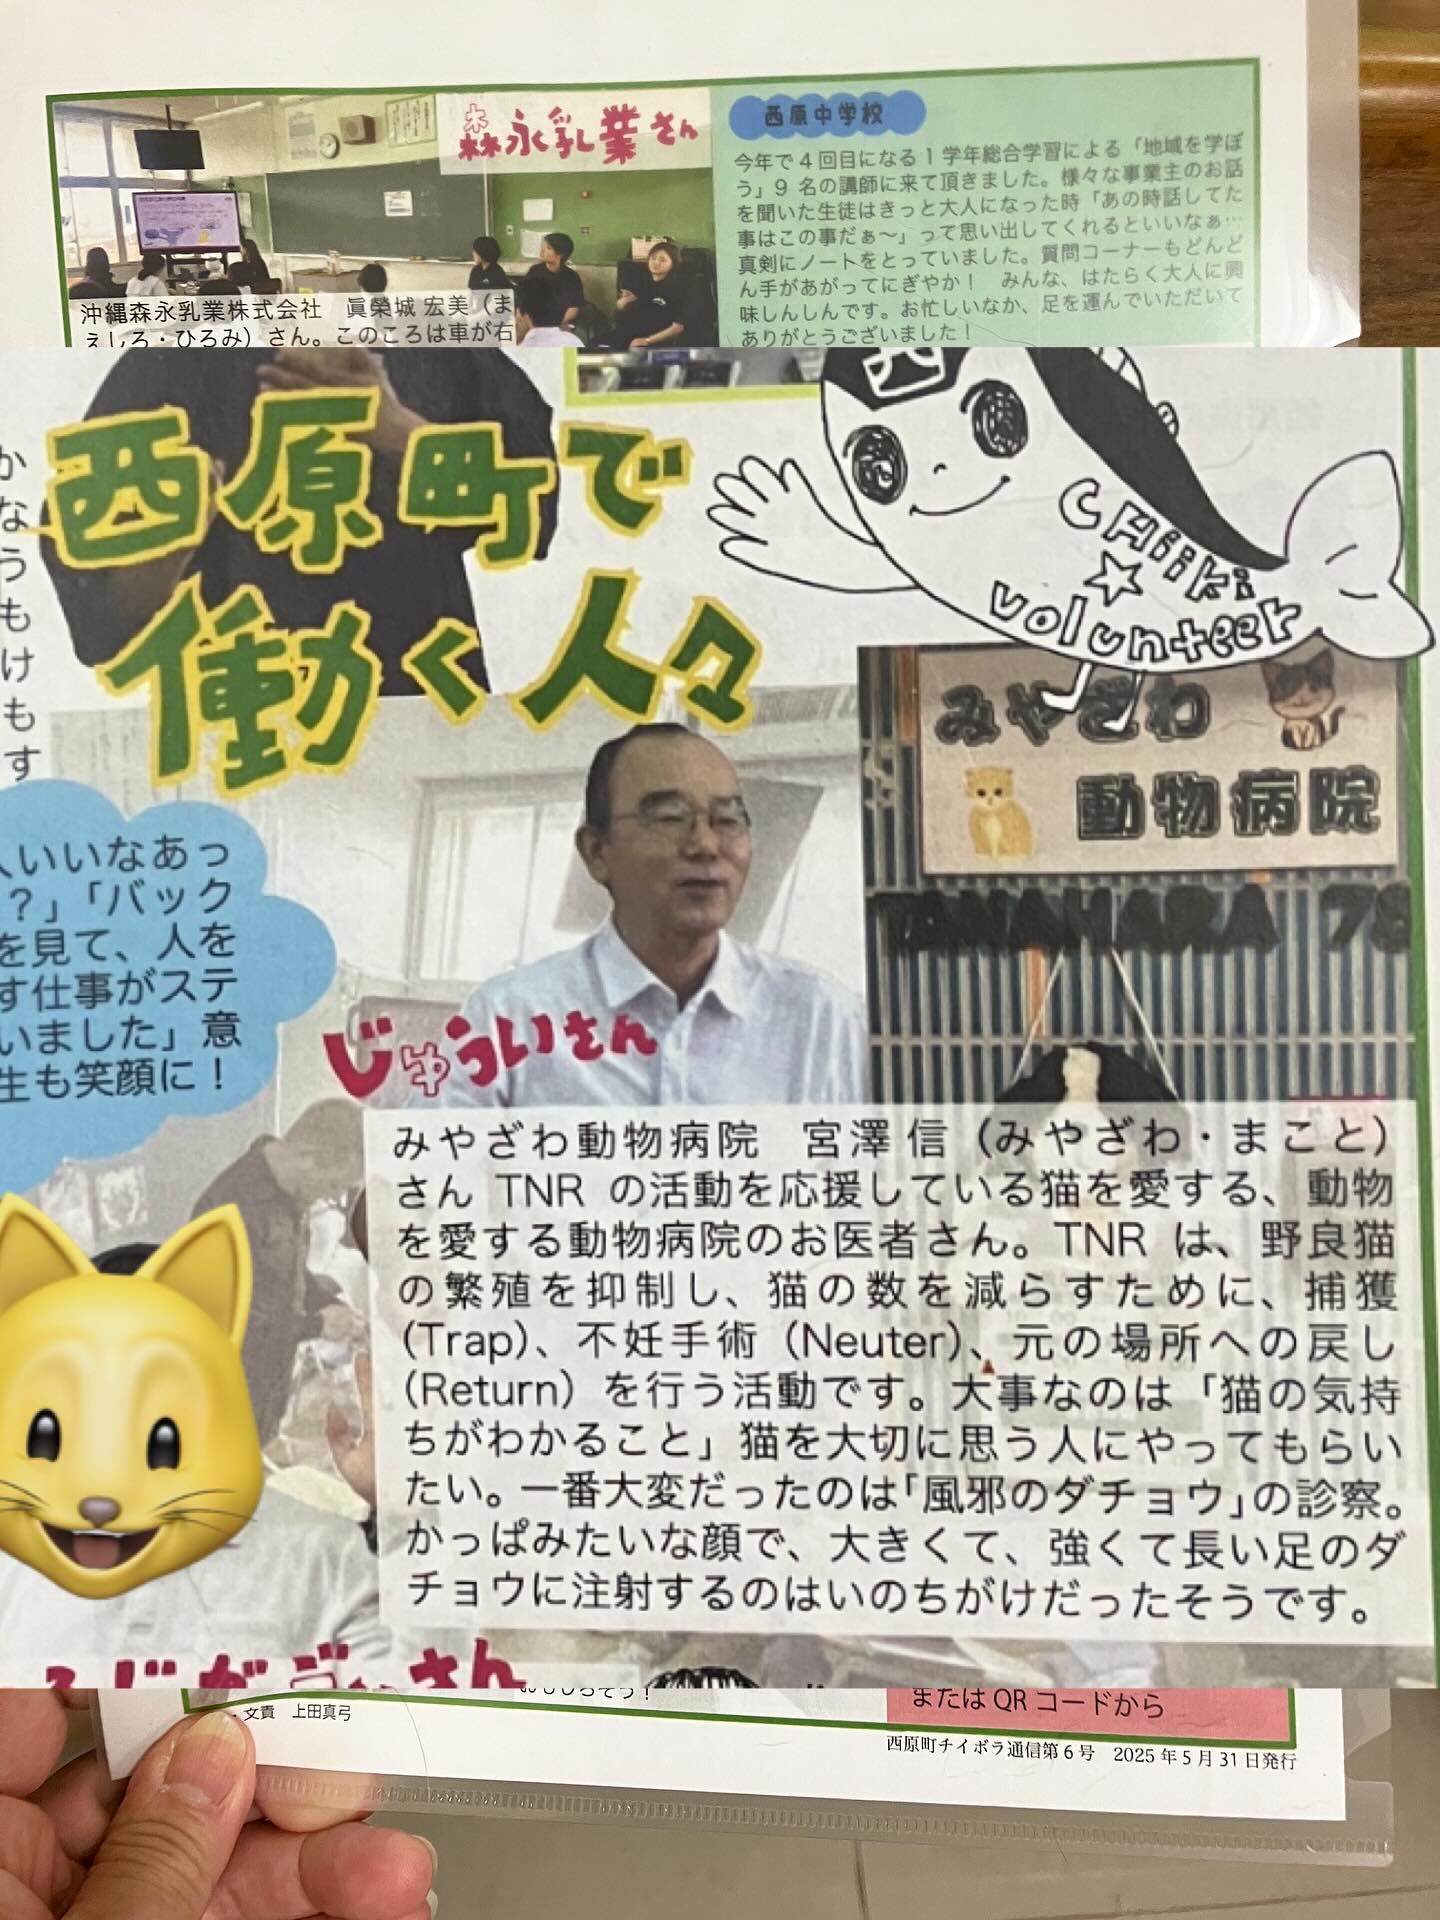 森永乳業さん
西原中学校
今年で4回目になる1学年総合学習による「地域を学ぼ
う」9名の講師に来て頂きました。様々な事業主のお話
を聞いた生徒はきっと大人になった時「あの時話してた
事はこの事だぁ〜」って思い出してくれるといいなぁ…
真剣にノートをとっていました。質問コーナーもどんど
ん手があがってにぎやか！ みんな、はたらく大人に興
味しんしんです。お忙しいなか、足を運んでいただいて
ありがとうございました！
沖縄森永乳業株式会社 眞榮城 宏美（ま
えしろ・ひろみ）さん。このころは車が右
か
な
う
も
け
も
す
西原町で
働く人々
CHiiki
☆
volunteer
みやざわ
動物病院
TANAHARA 78
いいなあっ
？」「バック
を見て、人を
す仕事がステ
いました」意
生も笑顔に！
じゅういさん
みやざわ動物病院 宮澤 信（みやざわ・まこと）
さん TNR の活動を応援している猫を愛する、動物
を愛する動物病院のお医者さん。TNR は、野良猫
の繁殖を抑制し、猫の数を減らすために、捕獲
(Trap)、不妊手術（Neuter)、元の場所への戻し
(Return）を行う活動です。大事なのは「猫の気持
ちがわかること」猫を大切に思う人にやってもらい
たい。一番大変だったのは「風邪のダチョウ」の診察。
かっぱみたいな顔で、大きくて、強くて長い足のダ
チョウに注射するのはいのちがけだったそうです。
またはQRコードから
・文責 上田真弓
西原町チイボラ通信第6号 2025年5月31日発行